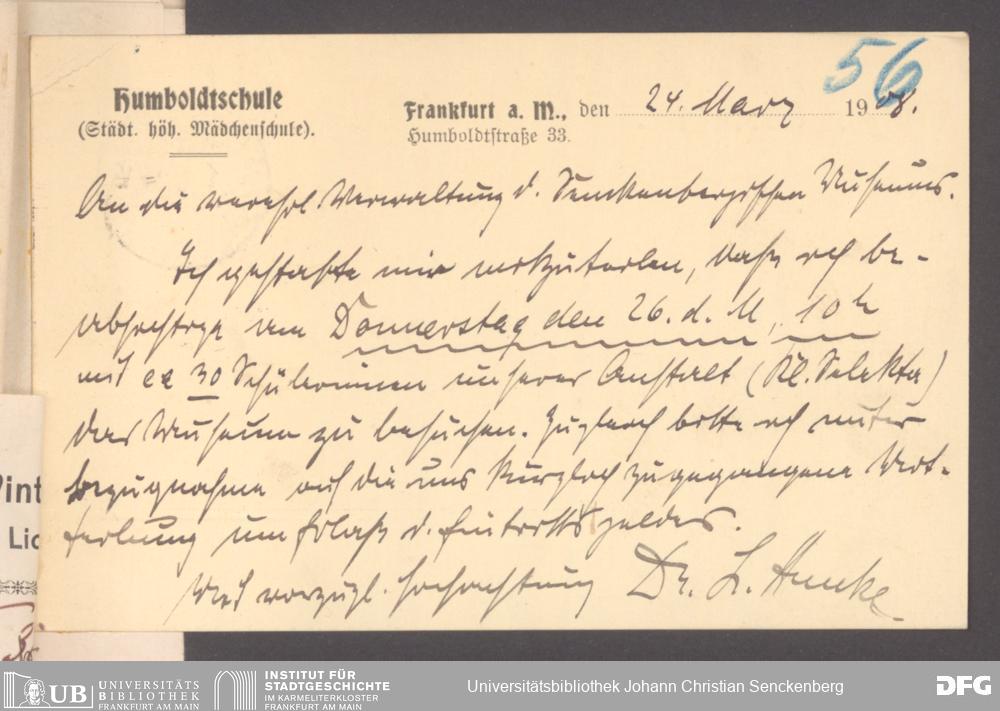 56
Humboldtschule
(Städt. höh. Mädchenschule).
Frankfurt a. M., den 24. März 1908.
Humboldtstraße 33.
An die verehrl. Verwaltung d. Senckenbergischen Museums.
Ich gestatte mir mitzuteilen, daß ich be-
absichtige am Donnerstag den 26. d. M., 10 h
mit ca 30 Schülerinnen unserer Anstalt (Kl. Selekta)
das Museum zu besuchen. Zugleich bitte ich unter
bezugnahme auf die uns kürzlich zugegangene Mit-
teilung um Erlaß d. Eintrittsgeldes.
Mit vorzügl. Hochachtung Dr. L.
Lic
UB UNIVERSITÄTS
BIBLIOTHEK
FRANKFURT AM MAIN
INSTITUT FÜR
STADTGESCHICHTE
IM KARMELITERKLOSTER
FRANKFURT AM MAIN
Universitätsbibliothek Johann Christian Senckenberg
DFG